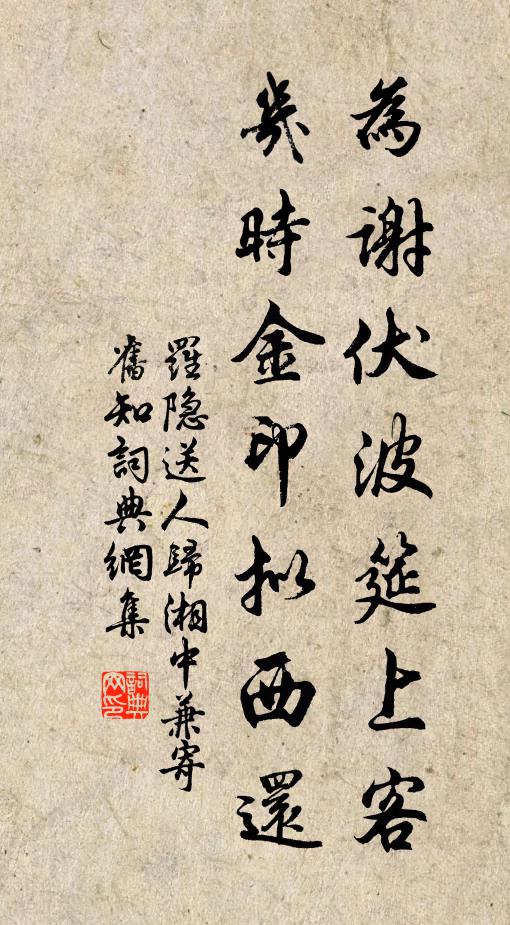 為謝伏波筵上客
幾時金印拟西還
羅隐送人歸湘中兼寄
舊知詞典網集
詞典
网印